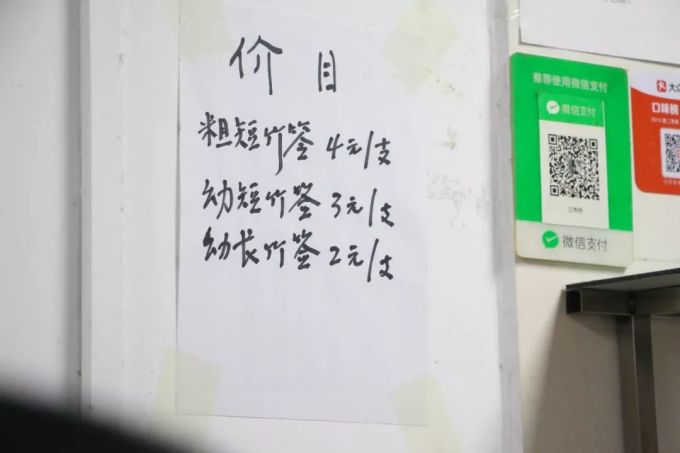 价目
粗短竹签 4元/支
幼短竹签 3元/支
幼长竹签 2元/支
推荐使用微信支付
微信支付
微信支付
大众
口味榜